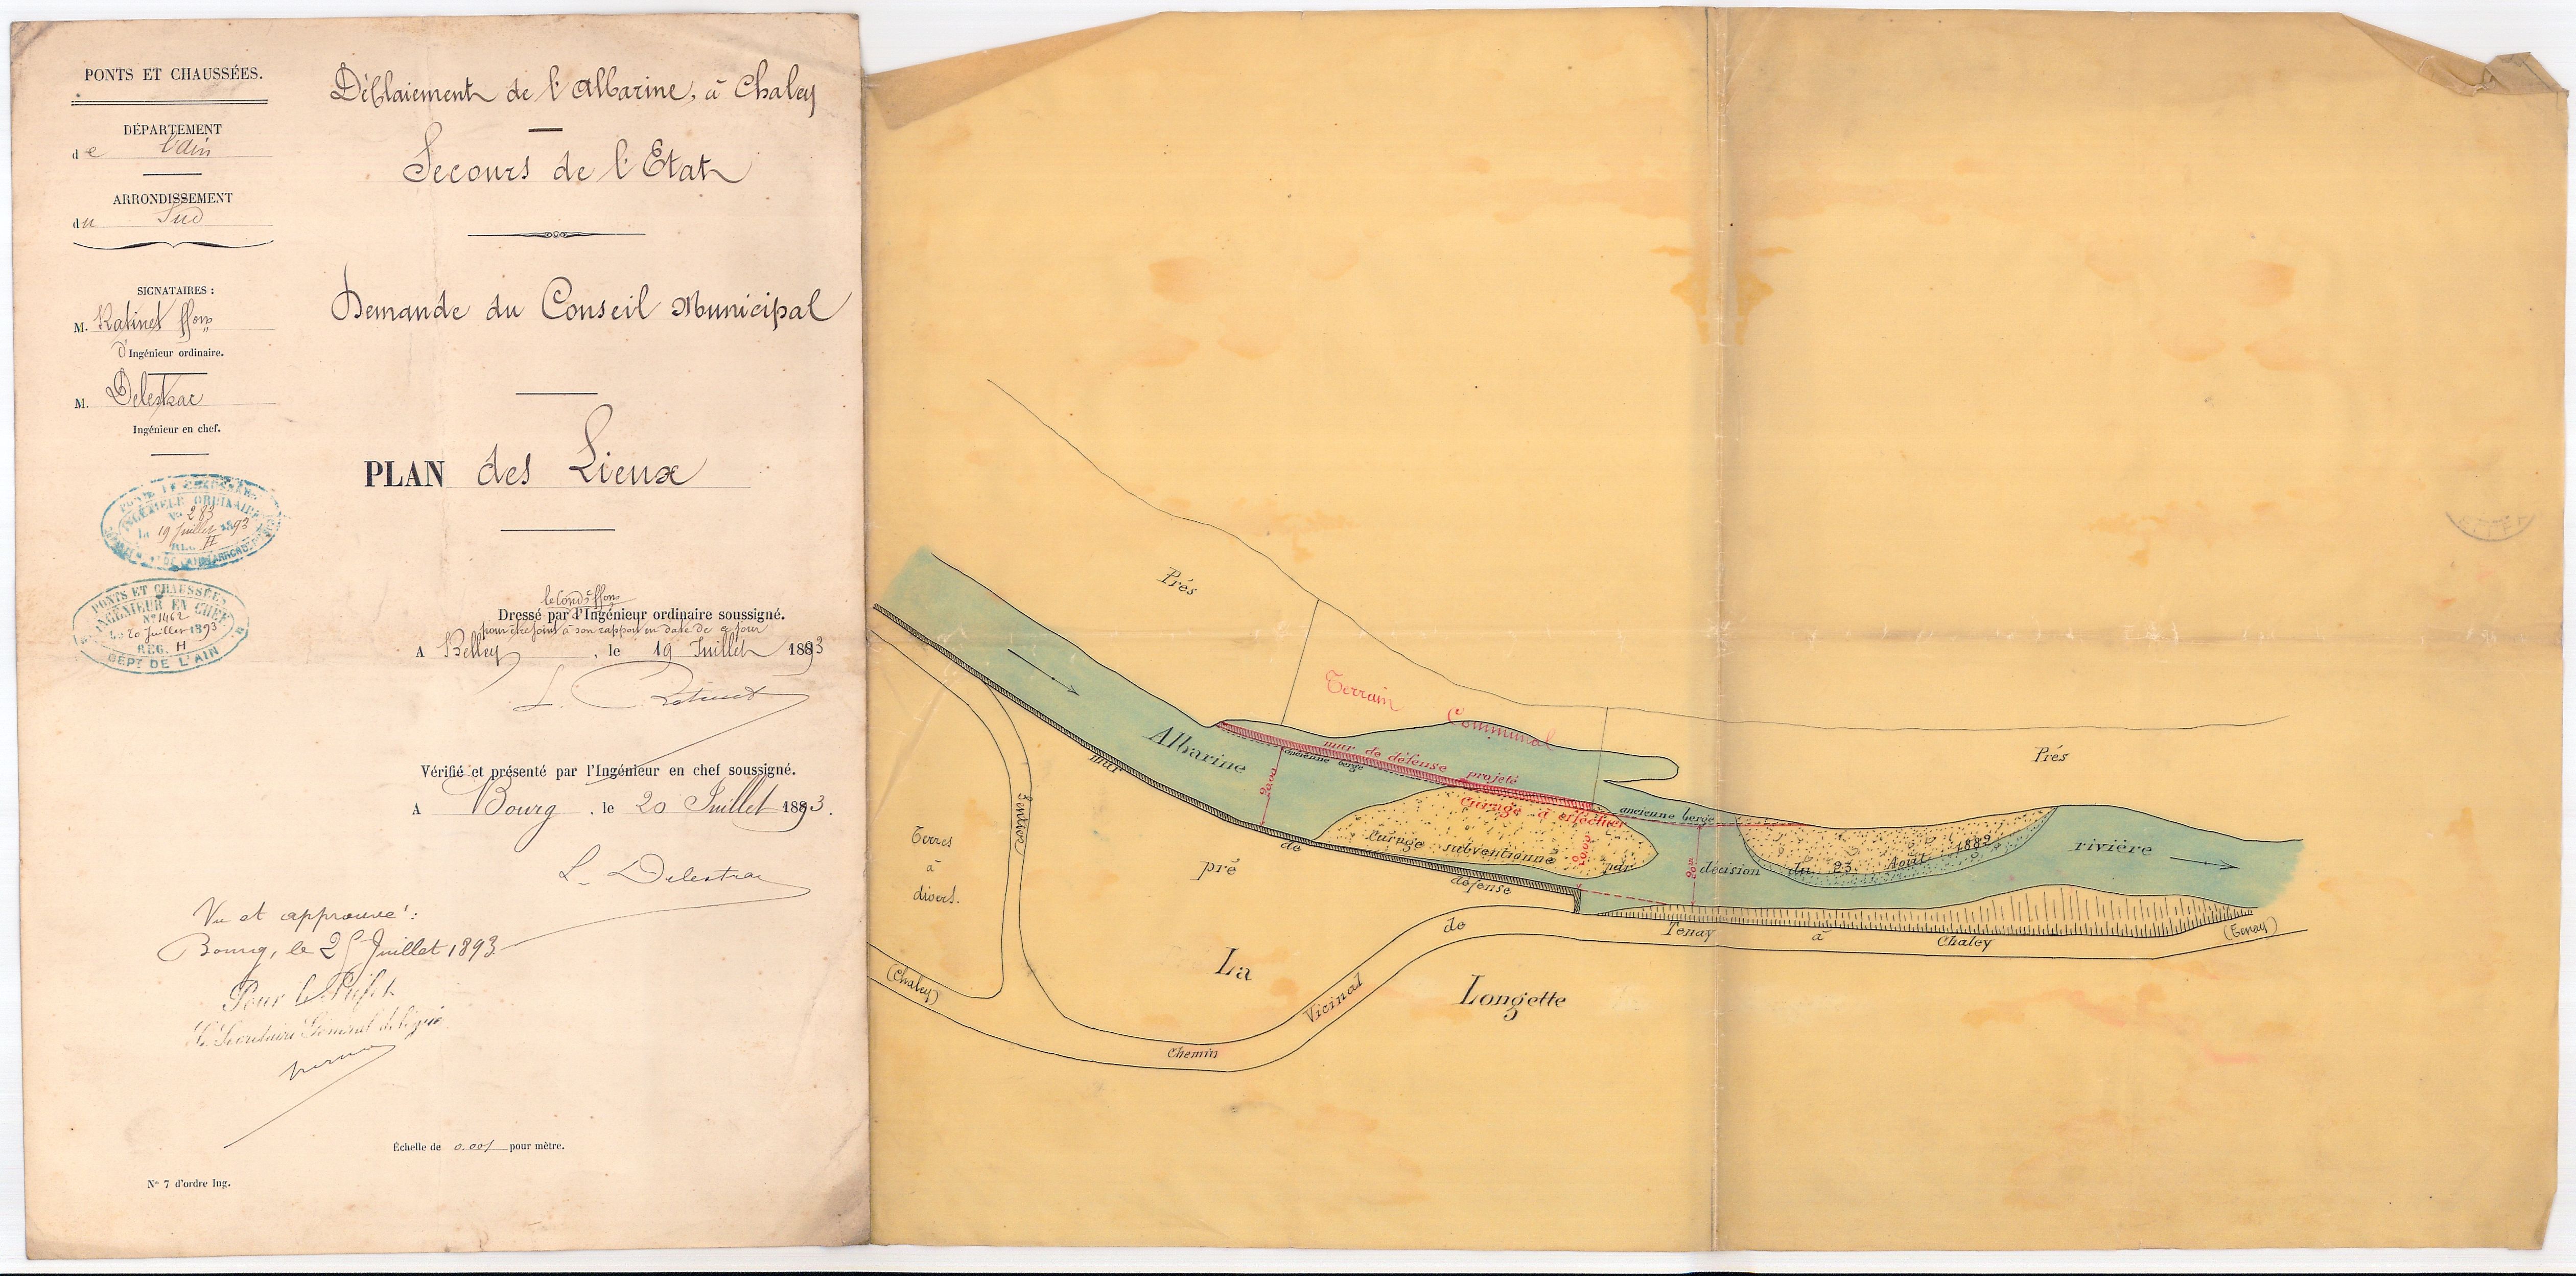 PONTS ET CHAUSSÉES.
DÉPARTEMENT
de l'Ain
ARRONDISSEMENT
du Sud
SIGNATAIRES :
M. Ratinet ffons
d'Ingénieur ordinaire.
M. Delestrac
Ingénieur en chef.
PONTS ET CHAUSSÉES
INGÉNIEUR ORDINAIRE
No 283
Le 19 Juillet 1893
REG. H
PONTS ET CHAUSSÉES
INGÉNIEUR EN CHEF
No 1462
Le 20 Juillet 1893
REG. H
DÉPT DE L'AIN
Déblaiement de l'Albarine, à Chaley
Secours de l'Etat
Demande du Conseil Municipal
PLAN des Lieux
le Condr ffons
Dressé par d'Ingénieur ordinaire soussigné.
pour être joint à son rapport en date de ce jour
A Belley, le 19 Juillet 1893
L. Ratinet
Vérifié et présenté par l'Ingénieur en chef soussigné.
A Bourg, le 20 Juillet 1893.
L. Delestrac
Vu et approuvé :
Bourg, le 25 Juillet 1893
Pour le Préfet
Le Secrétaire Général délégué
Échelle de 0.001 pour mètre.
No 7 d'ordre Ing.
Prés
Terrain Communal
Prés
Albarine
mur de défense projeté
ancienne berge
20m00
curage à effectuer
ancienne berge
Curage subventionné par décision du 23 Août 1889
rivière
mur de défense
Sentier
Terres
à
divers.
pré
La Longette
(Chaley)
Chemin Vicinal de Tenay à Chaley
(Tenay)